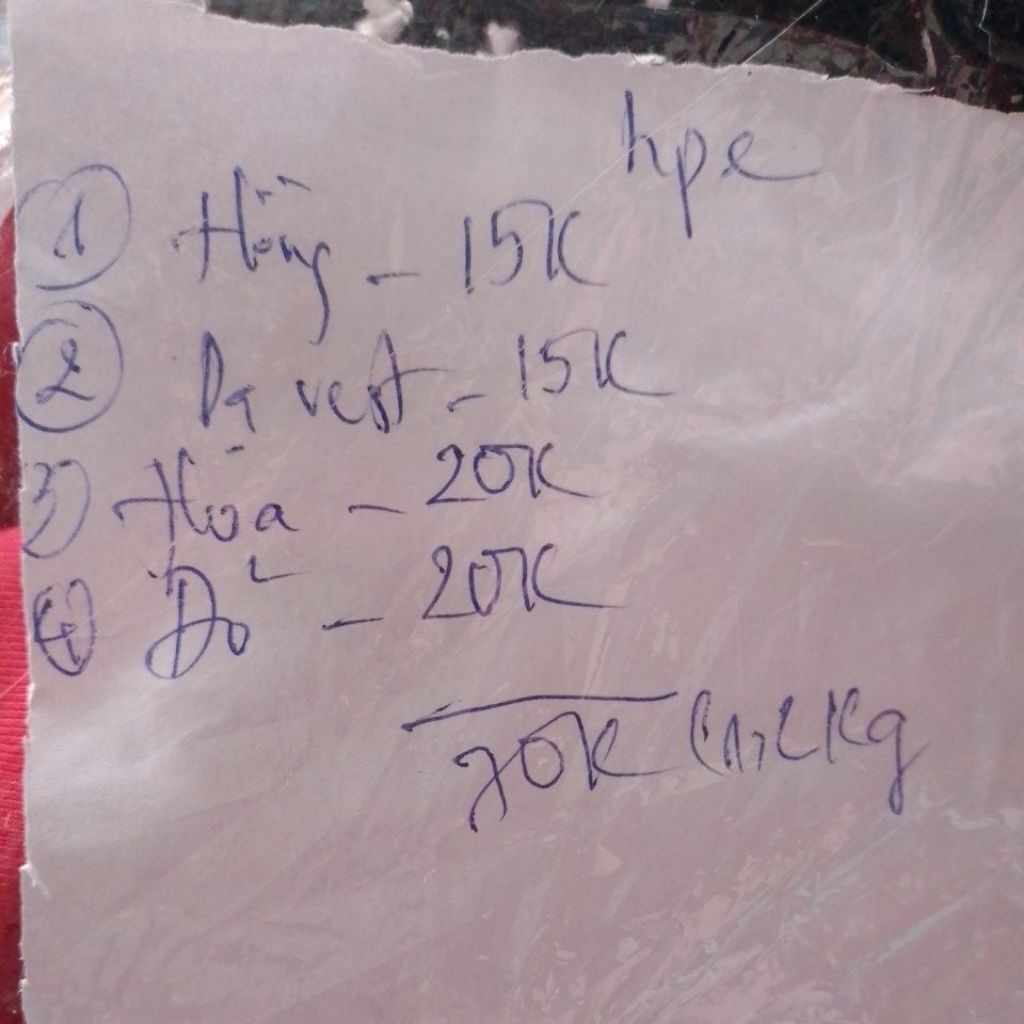 hpe
① Hồng - 15K
② Dạ vest - 15K
③ Họa - 20K
④ Đỏ - 20K
70K